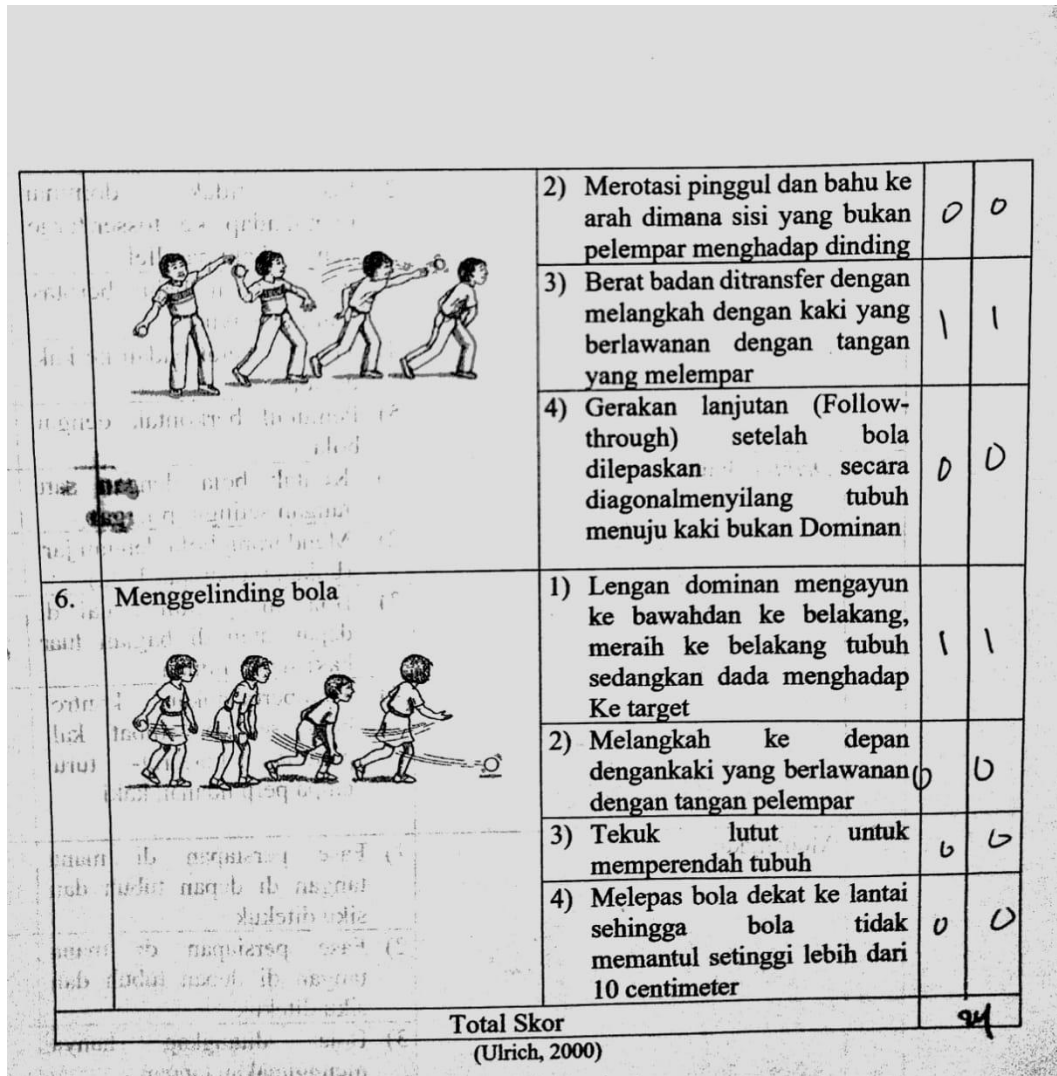 2) Merotasi pinggul dan bahu ke
arah dimana sisi yang bukan
pelempar menghadap dinding
0 0
3) Berat badan ditransfer dengan
melangkah dengan kaki yang
berlawanan dengan tangan
yang melempar
1 1
4) Gerakan lanjutan (Follow-
through) setelah bola
dilepaskan secara
diagonalmenyilang tubuh
menuju kaki bukan Dominan
0 0
6. Menggelinding bola
1) Lengan dominan mengayun
ke bawahdan ke belakang,
meraih ke belakang tubuh
sedangkan dada menghadap
Ke target
1 1
2) Melangkah ke depan
dengankaki yang berlawanan
dengan tangan pelempar
0 0
3) Tekuk lutut untuk
memperendah tubuh
0 0
4) Melepas bola dekat ke lantai
sehingga bola tidak
memantul setinggi lebih dari
10 centimeter
0 0
Total Skor
(Ulrich, 2000)